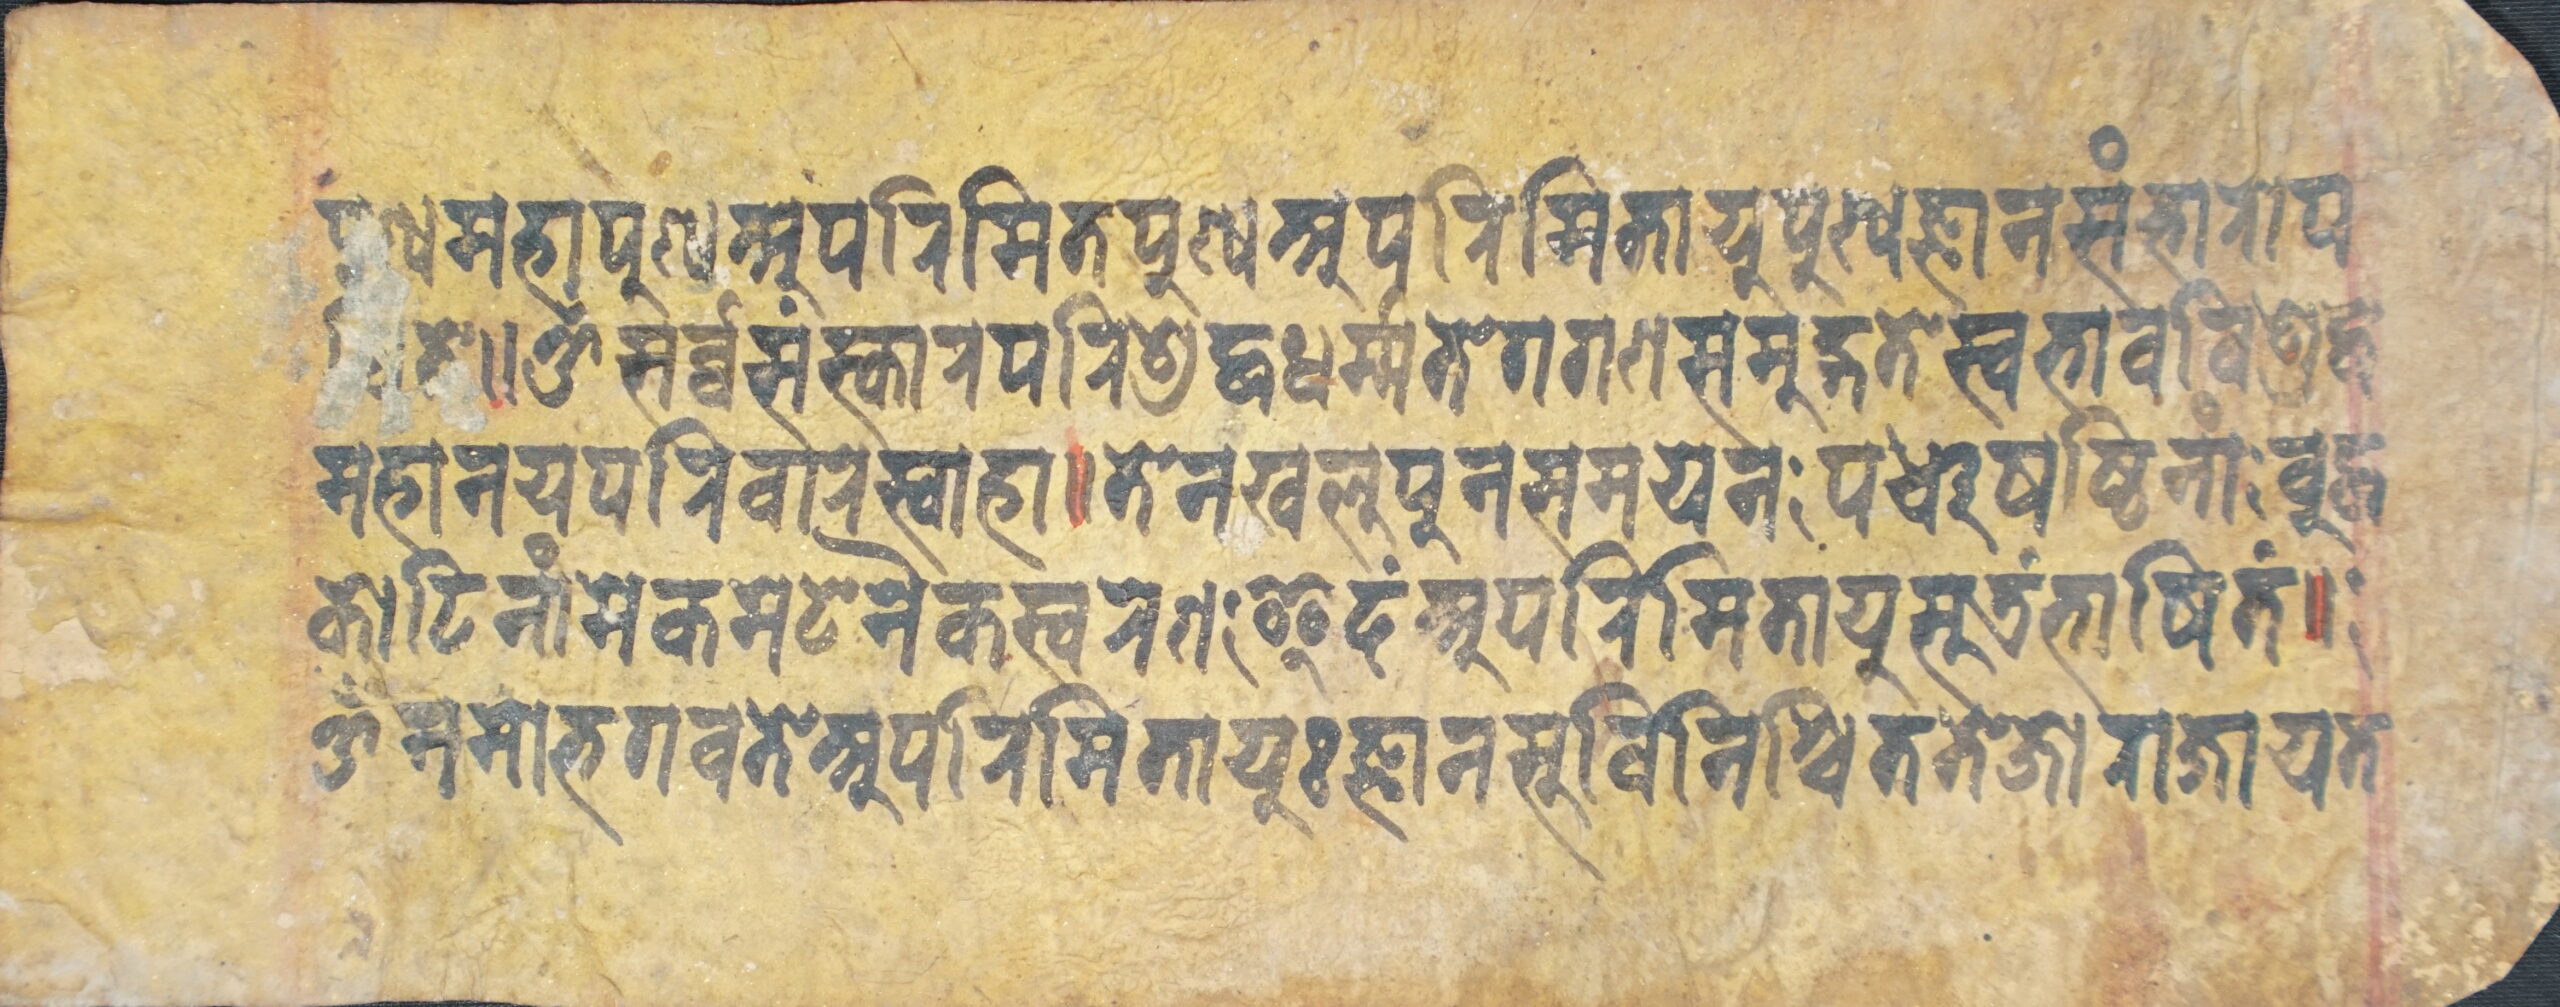 पुण्यमहापुण्यअपरिमितपुण्यअपरिमितायुपुण्यज्ञानसंभारोप
चिते॥ॐ सर्व्वसंस्कारपरिशुद्धधर्म्मतेगगणसमुद्गतेस्वभावविशुद्धे
महानयपरिवारेस्वाहा॥तेनखलुपुनसमयेनःपञ्चषष्ठिनांःबुद्ध
कोटिनांमेकमटेनैकस्वरेणःइदंअपरिमितायुसुत्रंभाषितं॥ः
ॐ नमोभगवतेअपरिमितायुःज्ञानसुविनिश्चिततेजोराजायत